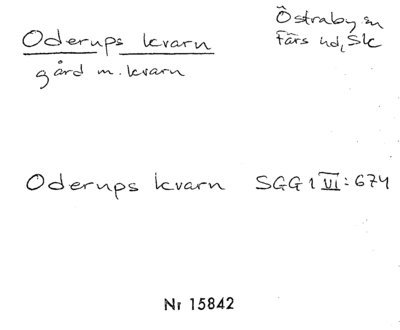 Oderups kvarn
gård m. kvarn
Östraby sn
Färs hd, Sk
Oderups kvarn SGG 1 VI: 674
Nr 15842